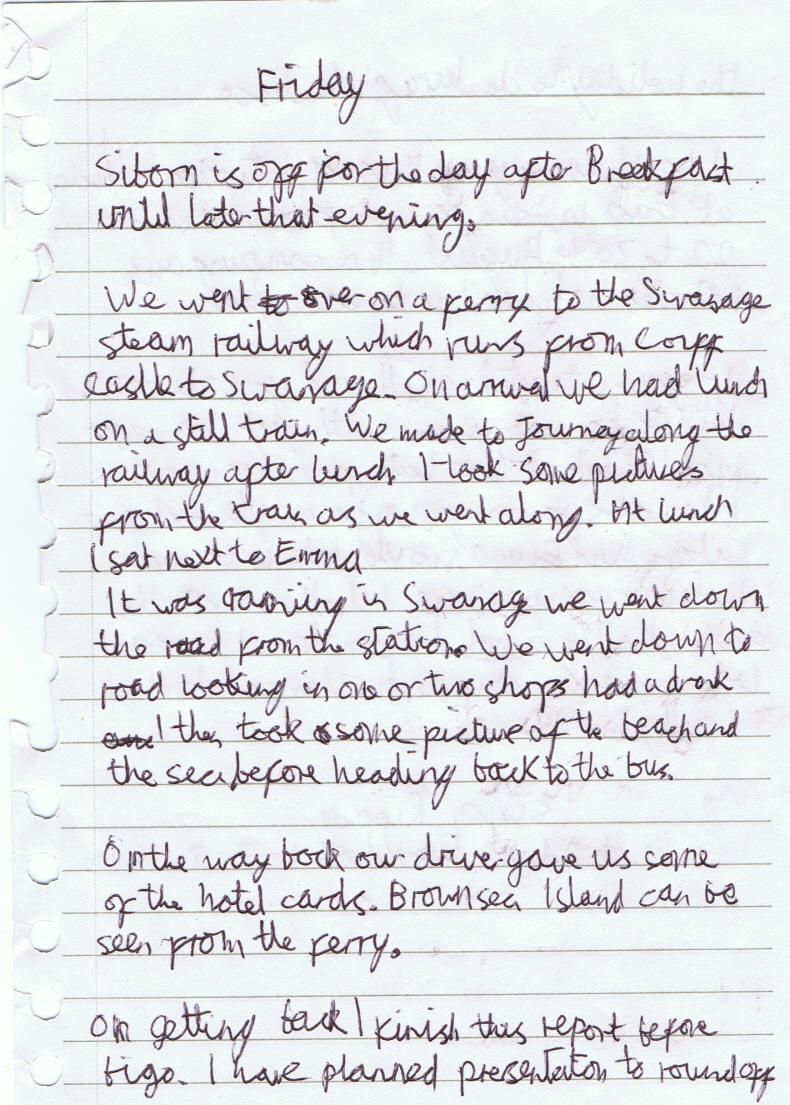 Friday
Siborn is off for the day after Breakfast.
until later that evening.
We went to over on a ferry to the Swanage
steam railway which runs from Corff
Castle to Swanage. On arrival we had lunch
on a still train. We made to Journey along the
railway after lunch. I took some pictures
from the train as we went along. At lunch
I sat next to Emma
It was raining in Swanage we went down
the road from the station. We went down to
road looking in one or two shops had a drink
I then took some picture of the beach and
the sea before heading back to the bus.
On the way back our driver gave us some
of the hotel cards. Brownsea Island can be
seen from the ferry.
On getting back I finish this report before
I have planned presentation to round off